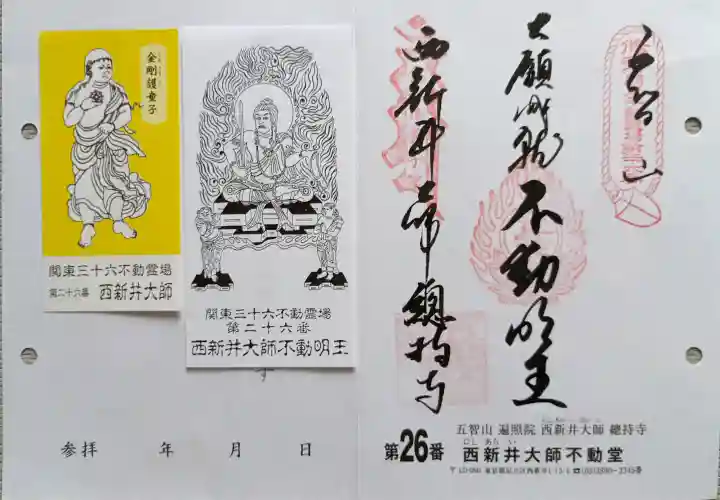 金剛護童子
関東三十六不動霊場
第二十六番 西新井大師
関東三十六不動霊場
第二十六番
西新井大師不動明王
参拝 年 月 日
大願成就 不動明王
西新井大師 總持寺
五智山 遍照院 西新井大師 總持寺
にし あら い
第26番 西新井大師不動堂